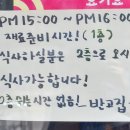 PM 15:00 ~ PM 16:00
재료준비시간! (1층)
식사하실분은 2층으로 오시
식사가능합니다!
2층 시간 없음! 반고집